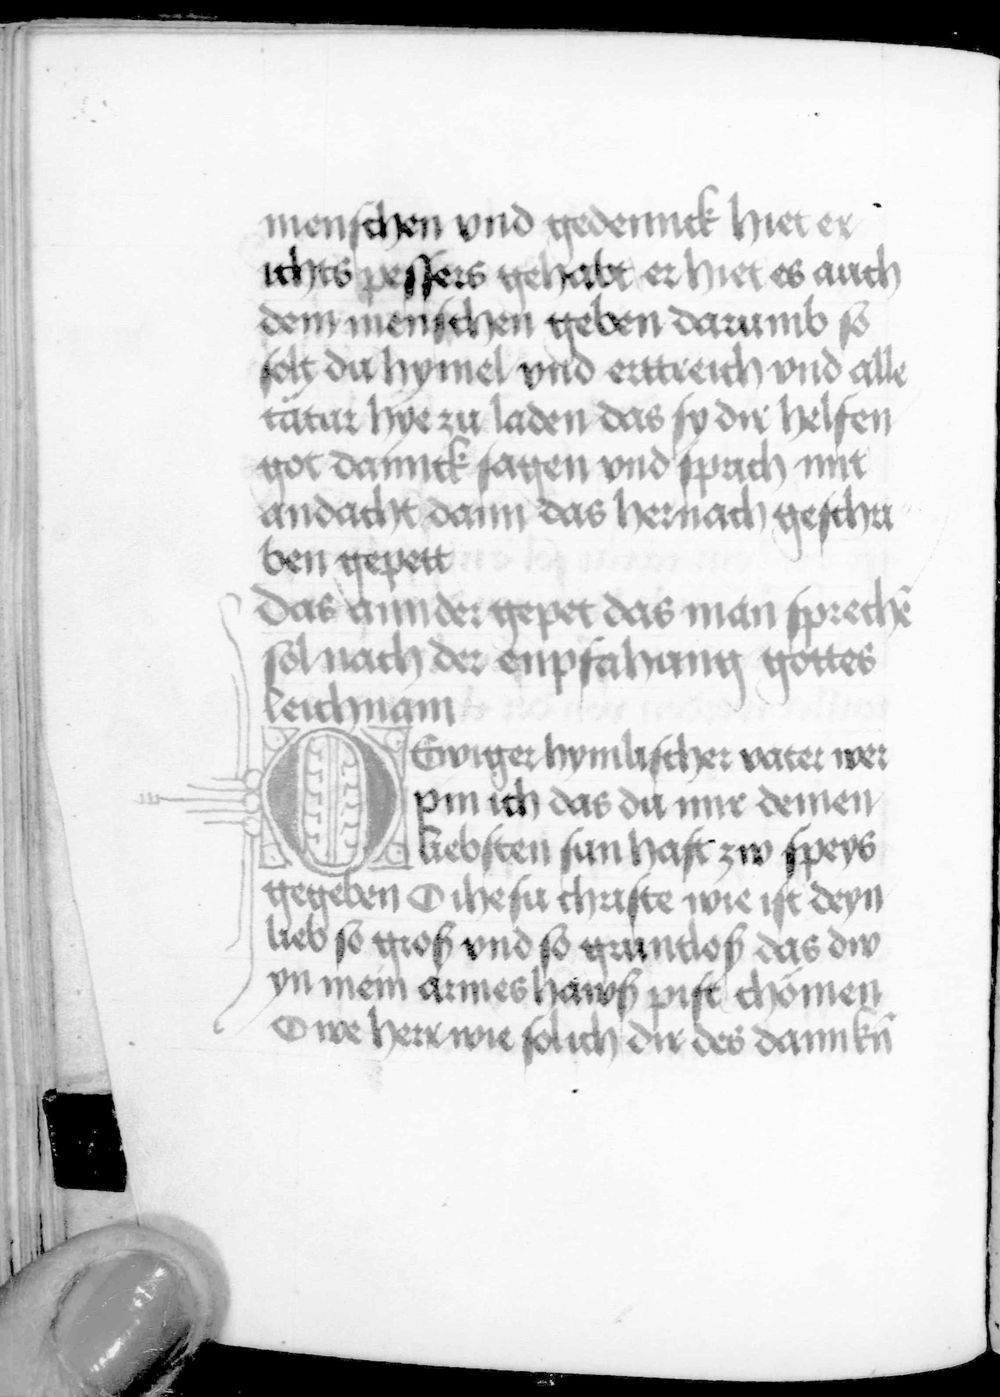 menschen vnd gedennck hiet er
ichts pessers gehabt er hiet es auch
dem menschen geben darumb so
solt du hymel vnd erttreich vnd alle
tätur hye zu laden das sy dir helfen
got dannck sagen vnd sprich mit
andacht dann das hernach geschri
ben gepett
Das annder gepet das man sprechē
sol nach der enpfahung gottes
leichnam
O Ewiger hymlischer vater wer
pin ich das du mir deinen
liebsten sun hast zw speys
gegeben O ihesu christe wie ist deyn
lieb so groß vnd so gruntloß das dw
yn mein armes hawß pist chömen
O we herr wie sol ich dir des dannkn̄